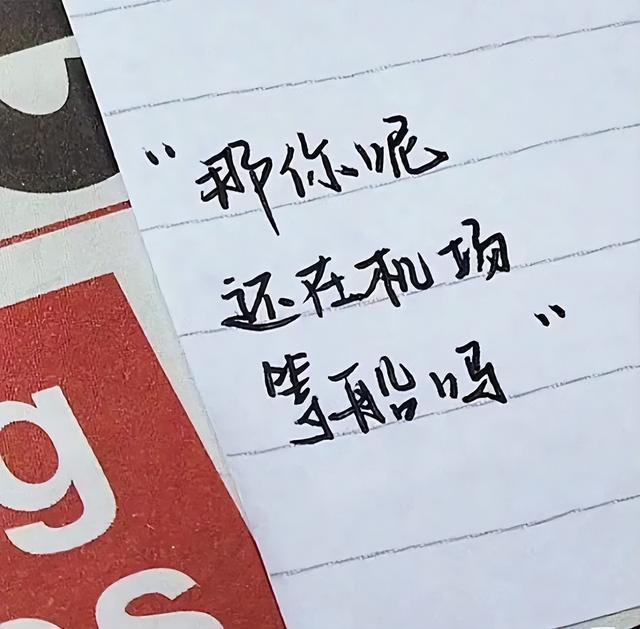 "那你呢
还在机场
等船吗"
g
es